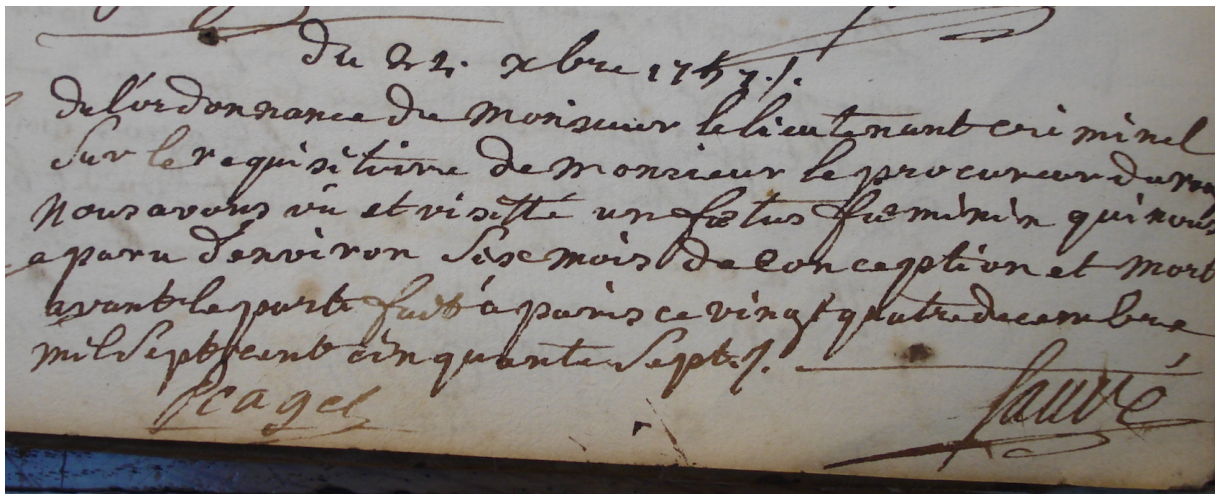 du 24. xbre 1757./.
de l'ordonnance de Monsieur le lieutenant criminel
sur le requisitoire de monsieur le procureur du roy
Nous avons vû et visitté un fœtus fœminin qui nous
a paru d'environ six mois de conception et mort
avant le part fait a paris ce vingt quatre decembre
mil sept cent cinquante sept./.
sauvé